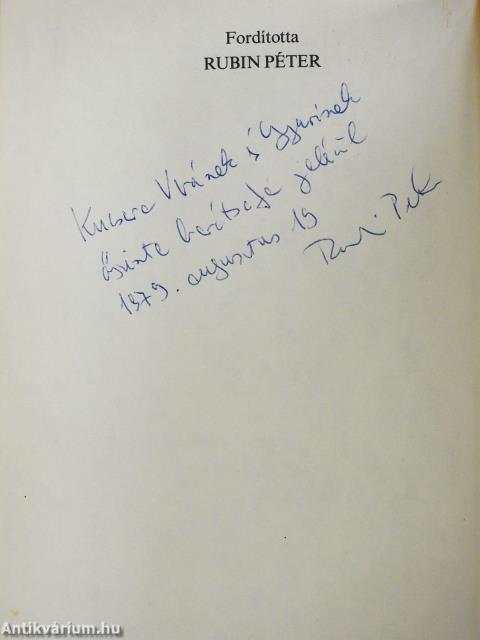 Fordította
RUBIN PÉTER
Kucsera Verának és Gyurinak
őszinte barátsága jeléül
1979. augusztus 19
Rubin Péter
Antikvárium.hu